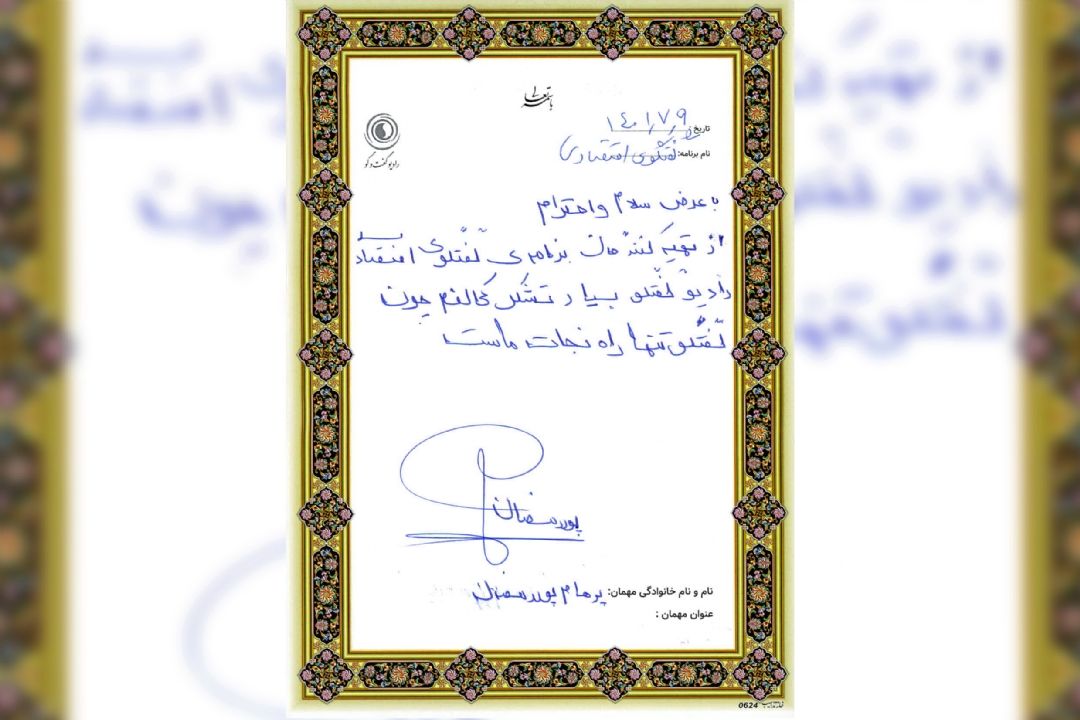 باسمه تعالی
رادیو گفت و گو
تاریخ: ۱۴۰۱/۷/۹
نام برنامه: گفتگوی اقتصادی
با عرض سلام و احترام
از تهیه کنندگان برنامه‌ی گفتگوی اقتصادی
رادیو گفتگو بسیار تشکر می‌کنم چون
گفتگو تنها راه نجات ماست
پوررمضان
نام و نام خانوادگی مهمان: پرهام پوررمضان
عنوان مهمان :
0624